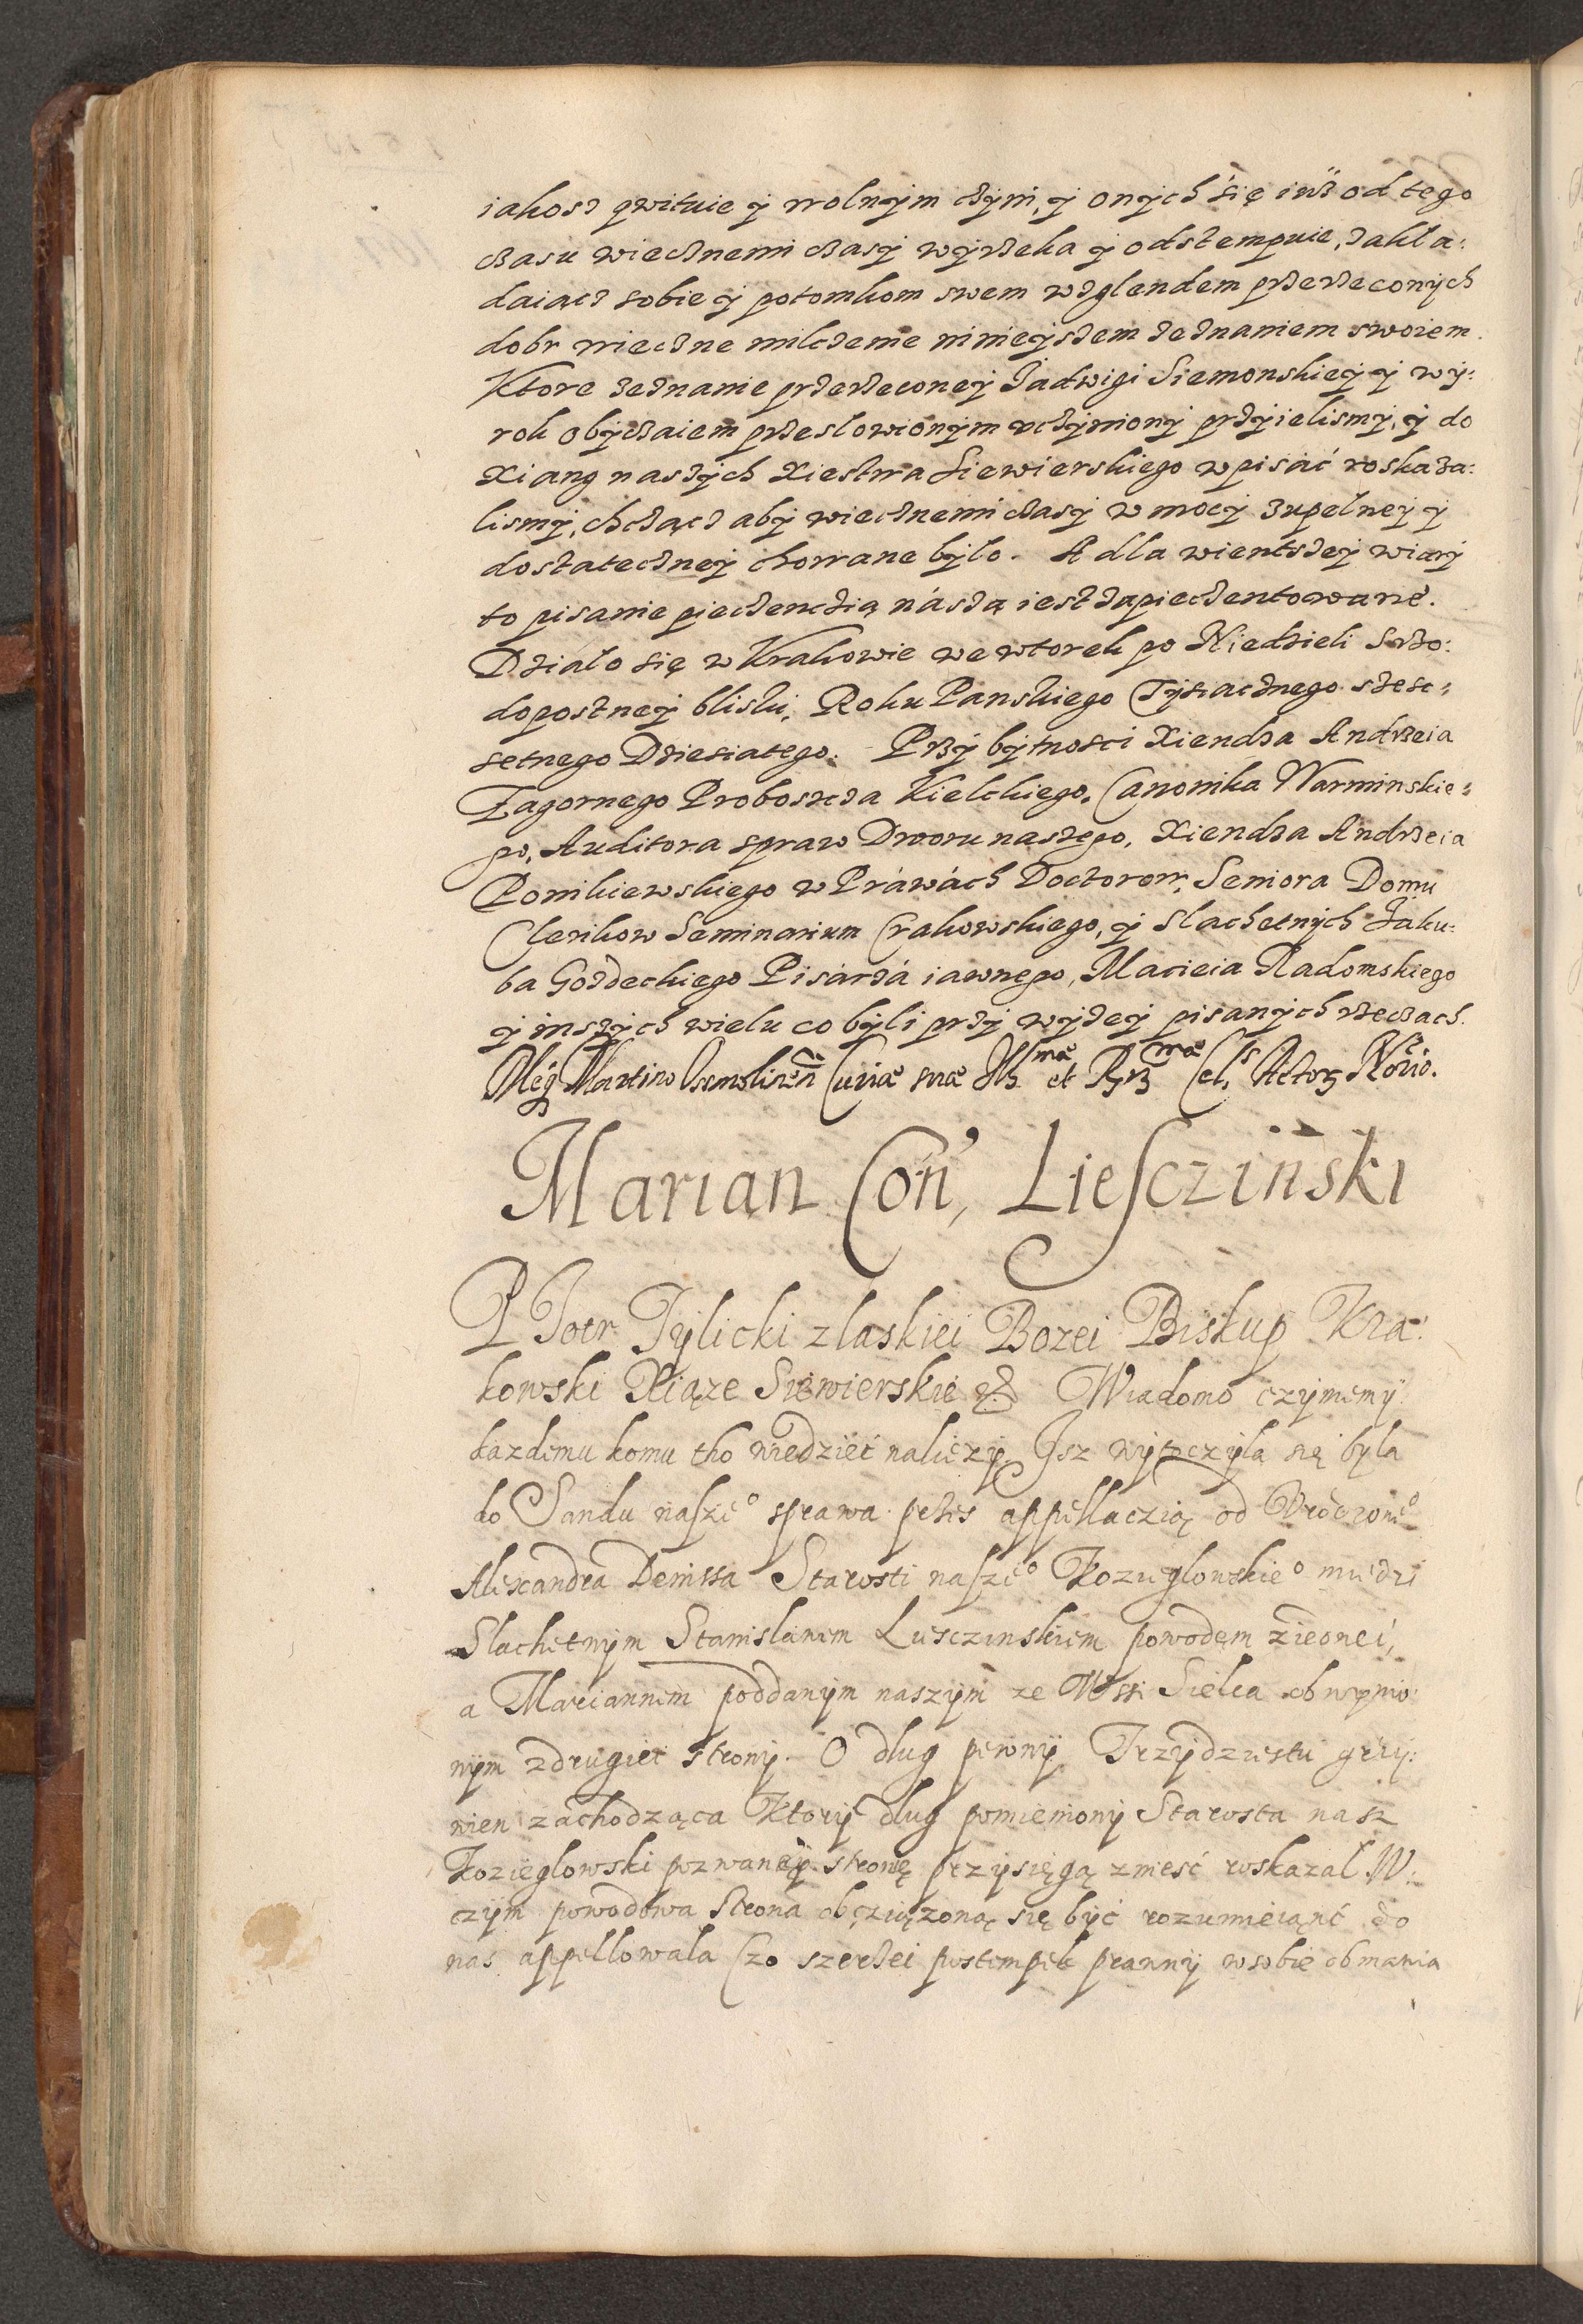 iakosz qwituie y wolnÿm czÿni, ÿ onÿch się iuż od tego
czasu wiecznemi czasÿ wÿrzeka ÿ odstempuie, zakła:
daiącz sobie ÿ potomkom swem wzglendem przerzeconÿch
dobr wieczne milczenie ninieÿszem zeznaniem swoiem.
Ktore zeznanie przerzeconeÿ Jadwigi Siemonskieÿ ÿ wÿ:
rok obÿczaiem przesłowionÿm vczÿnionÿ przÿielismÿ, ÿ do
Xiang naszÿch Xiestwa Siewierskiego wpisać roskaza:
lismÿ, chcząncz abÿ wiecznemi czasÿ w mocÿ zupełneÿ ÿ
dostateczneÿ chowane bÿło. A dla wientszeÿ wiarÿ
to pisanie pieczenczią nászą iest zapieczentowane.
Działo się w Krakowie we wtorek po Niedzieli Srzo:
dopostneÿ bliski, Roku Panskiego Tÿsiacznego szesc:
setnego Dziesiatego. Przÿ bÿtnosci Xiendza Andrzeia
Zagornego Proboszcza Kielckiego, Canonika Warminskie:
go, Auditora spraw Dworu naszego, Xiendza Andrzeia
Ponikiewskiego w Práwách Doctorow, Seniora Domu
Clerikow Seminarium Crakowskiego, ÿ Slachetnÿch Jaku:
ba Gozdeckiego Pisarzá iawnego, Macieia Radomskiego
ÿ inszÿch wielu co bÿli przÿ wÿzeÿ pisanÿch rzeczach.
Martino Curiæ suæ et Actor Notrio.
Marian Con, Liesczinski
PJotr Tÿlicki z laskiei Bozei Biskup Kra:
kowski Xiąze Siewierskie &. Wiadomo czÿniemÿ
kazdemu komu tho wiedzieć naliezÿ. Jsz wÿtoczÿla się bÿla
do Sandu naszeo sprawa przes appellaczią od Vrodzoneo
Alexandra Denissa Starosti naszeo Kozieglowskieo miedzi
Slachetnÿm Stanislawem Liesczinskiem powodem z iednei,
a Mariannem poddanÿm naszÿm ze Wssi Sielca obwinio:
nÿm z drugiei stronÿ. O dlug pewnÿ Trzÿdziestu grzÿ:
wien zachodząca Ktorÿ dlug pomienionÿ Starosta nasz
Kozieglowski pozwaneÿ stronę przÿsięgą zniesć roskazal W:
czÿm powodowa strona obcziązoną się bÿć rozumieiąnć do
nas appellowala Czo szerzei postempek prawnÿ w sobie obmawia